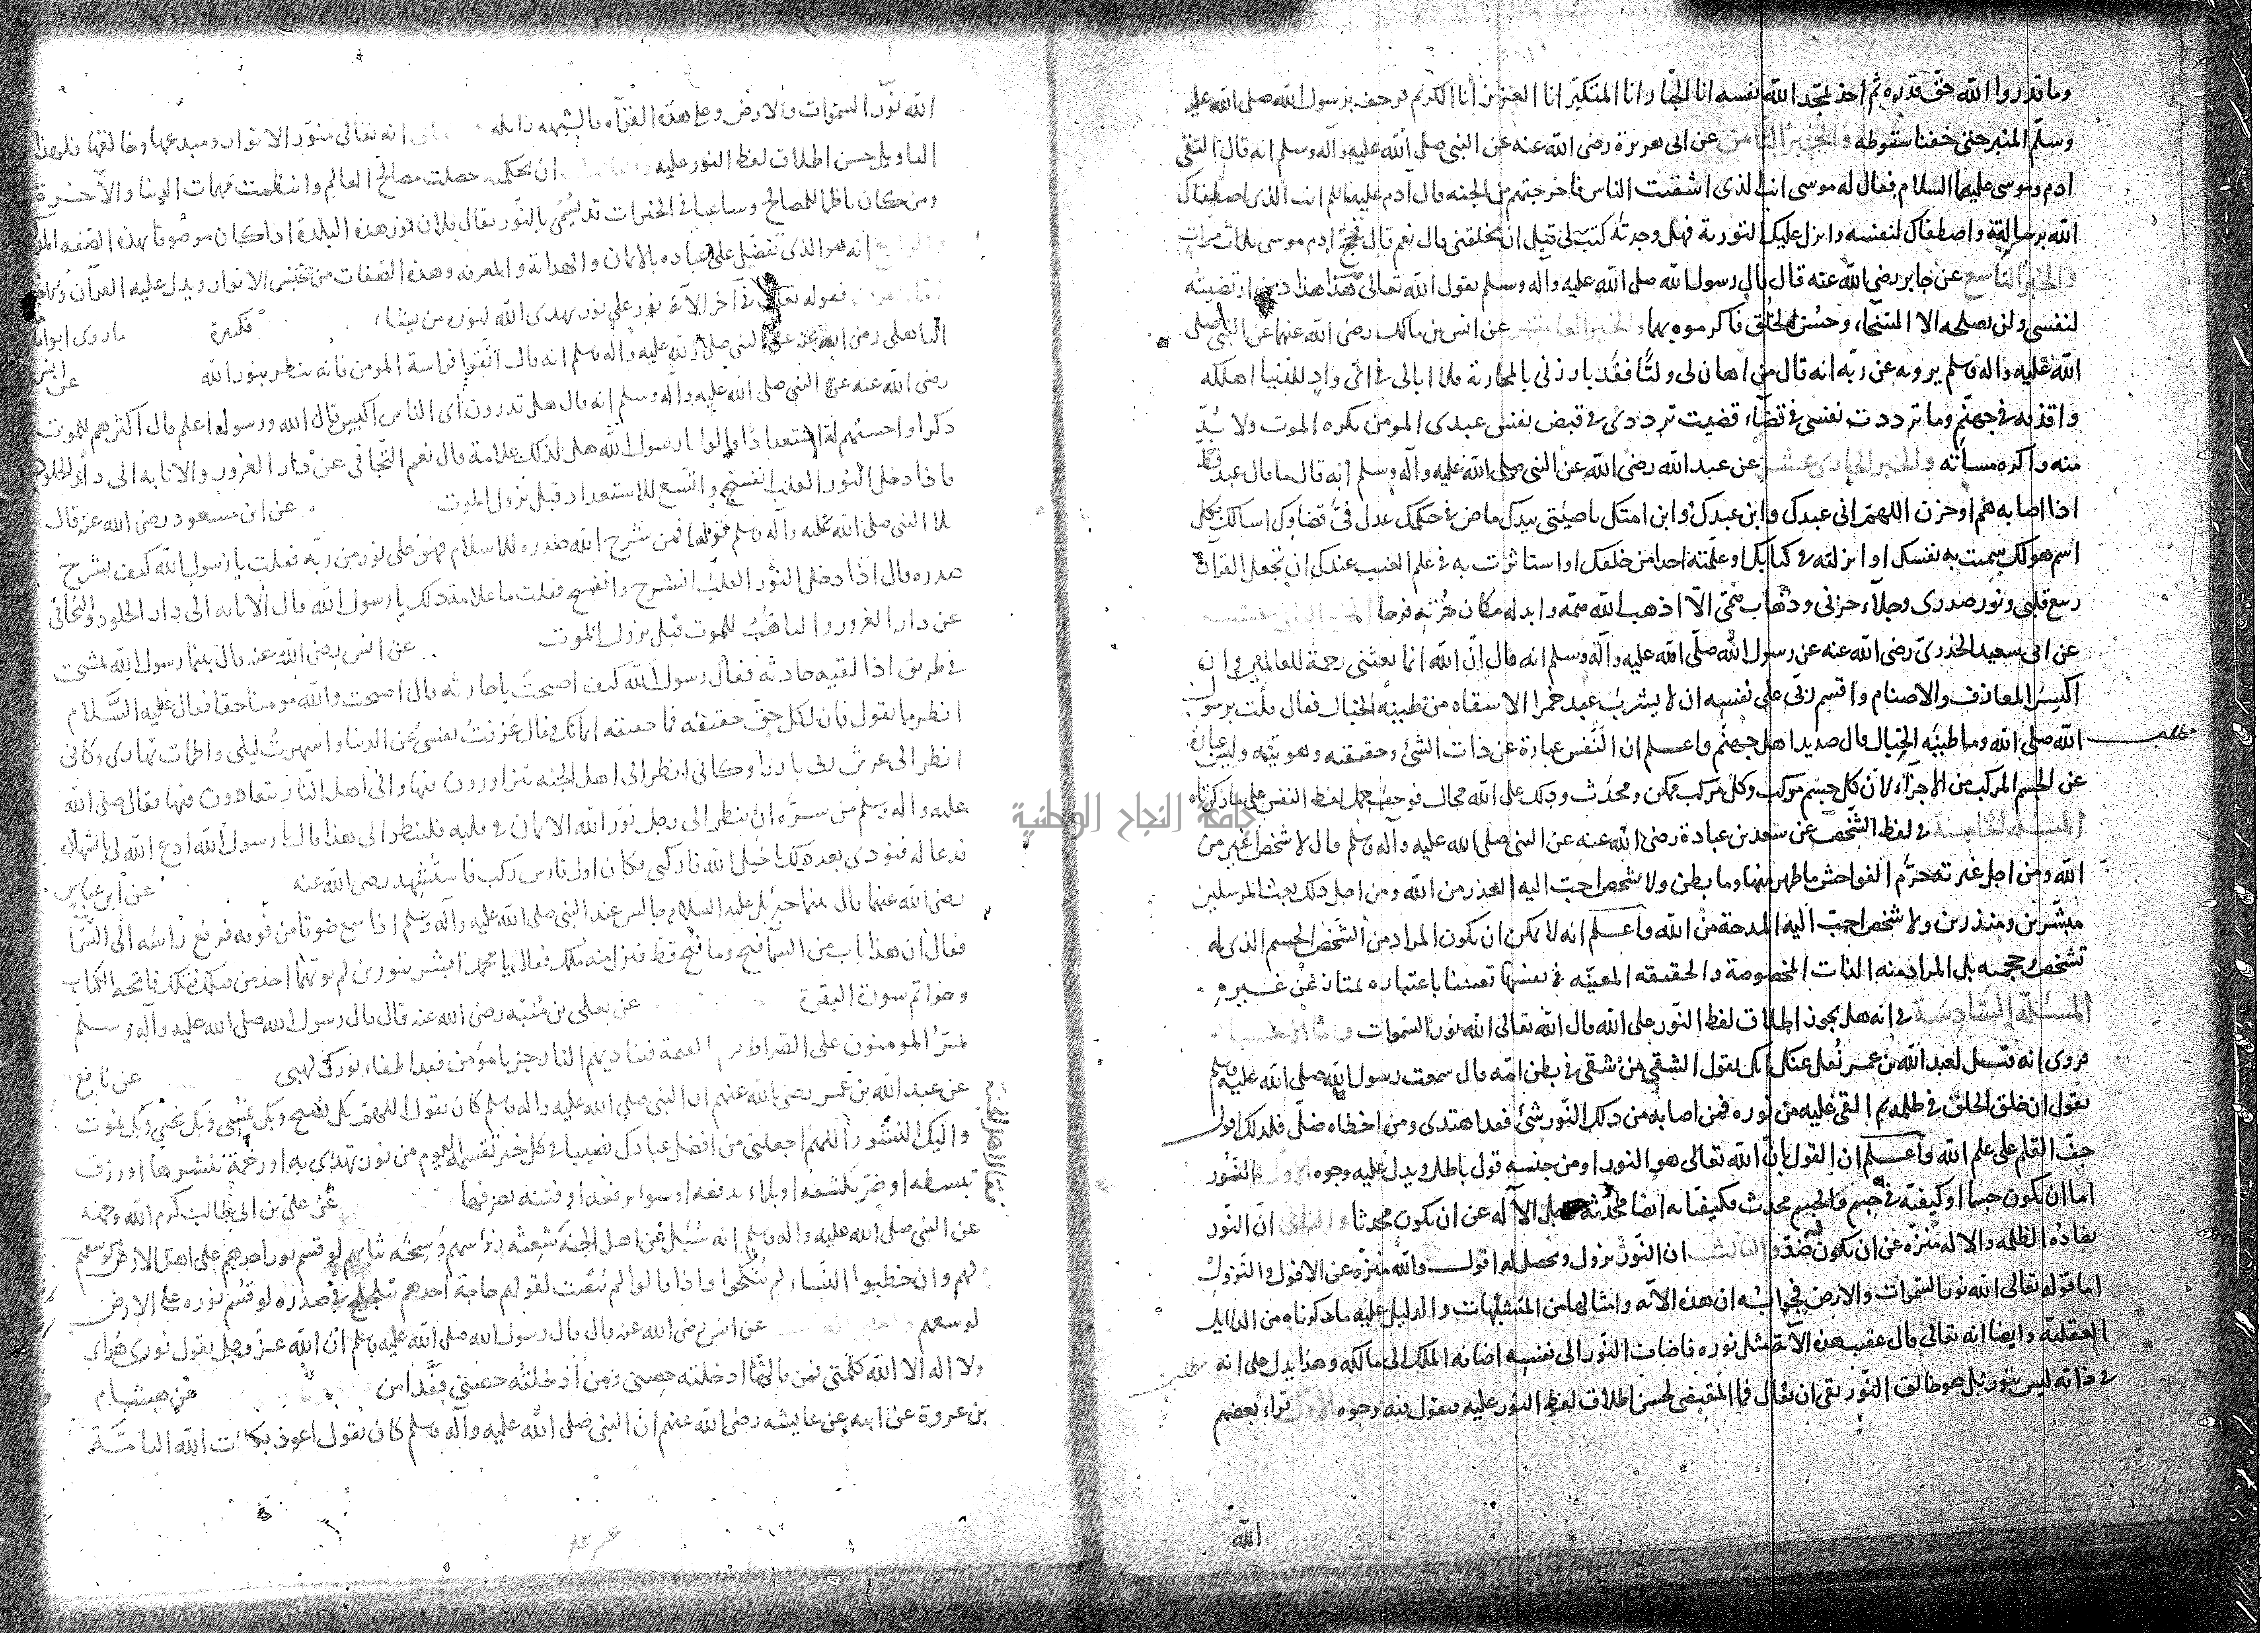 وما قدروا الله حق قدره ثم اخذ يمجد الله نفسه انا الجبار انا المتكبر انا العزيز انا الكريم فرجف برسول الله صلى الله عليه
وسلم المنبر حتى خفنا سقوطه والخبر الثامن عن ابى هريرة رضى الله عنه عن النبى صلى الله عليه وآله وسلم انه قال التقى
ادم وموسى عليهما السلام فقال له موسى انت الذى اشقيت الناس فاخرجتهم من الجنه قال آدم عليه السلم انت الذى اصطفاك
الله برسالته واصطفاك لنفسه وانزل عليك التورية فهل وجدته كتب لى قبل ان يخلقنى قال نعم قال فحج ادم موسى ثلاث مرات
والخبر التاسع عن جابر رضى الله عنه قال قال رسول الله صلى الله عليه وآله وسلم يقول الله تعالى هذا دين ارتضيته
لنفسى ولن يصلحه الا السخاء وحسن الخلق فاكرموه بهما والخبر العاشر عن انس بن مالك رضى الله عنهما عن النبى صلى
الله عليه واله وسلم يرويه عن ربه انه قال من اهان لى وليا فقد بارزنى بالمحاربة فلا ابالى فى اى واد للدنيا اهلكه
واقذفه فى جهنم وما ترددت نفسى فى قضاء قضيت ترددى فى قبض نفس عبدى المومن يكره الموت ولا بد
منه واكره مساته والخبر الحادى عشر عن عبد الله رضى الله عن النبى صلى الله عليه وآله وسلم انه قال ما قال عبد قط
اذا اصابه هم او حزن اللهم انى عبدك وابن عبدك وابن امتك ناصيتى بيدك ماض فى حكمك عدل فى قضاوك اسالك بكل
اسم هو لك سميت به نفسك او انزلته فى كتابك او علمته احدا من خلقك او استاثرت به فى علم الغيب عندك ان تجعل القرآن
ربيع قلبى ونور صدرى وجلاء حزنى وذهاب همى الا اذهب الله همه وابدله مكان حزنه فرحا الخبر الثانى عشر
عن ابى سعيد الخدرى رضى الله عنه عن رسول الله صلى الله عليه وآله وسلم انه قال ان الله انما بعثنى رحمة للعالمين وان
اكسر المعازف والاصنام واقسم ربى على نفسه ان لا يشرب عبد خمرا الا سقاه من طينه الخبال فقال قلت يرسول
الله صلى الله وما طينه الخبال قال صديد اهل جهنم واعلم ان النفس عبارة عن ذات الشئ وحقيقته وهويته وليس عبارة
مطلب
عن الجسم المركب من الاجزاء لان كل جسم مركب وكل مركب ممكن ومحدث وذلك على الله محال فوجب حمل لفظ النفس على ما ذكرناه
المسئلة الخامسة فى لفظ الشخص عن سعد بن عبادة رضى الله عنه عن النبى صلى الله عليه وآله وسلم قال لا شخص اغير من
الله ومن اجل غيرته حرم الفواحش ما ظهر منها وما بطن ولا شخص احب اليه العذر من الله ومن اجل ذلك بعث المرسلين
مبشرين ومنذرين ولا شخص احب اليه المدحة من الله واعلم انه لا يمكن ان يكون المراد من الشخص الجسم الذى له
تشخص وحجميه بل المراد منه الذات المخصوصة والحقيقه المعينه فى نفسها تعينا باعتباره يمتاز عن غيره
المسئلة السادسة فى انه هل يجوز اطلاق لفظ النور على الله قال الله تعالى الله نور السموات واما الاخبار
فروى انه قيل لعبد الله بن عمر نقل عنك انك تقول الشقى من شقى فى بطن امه قال سمعت رسول الله صلى الله عليه وسلم
يقول ان خلق الخلق فى ظلمه ثم القى عليه من نوره فمن اصابه من ذلك النور شئ فقد اهتدى ومن اخطاه ضل فلذلك اقول
جف القلم على علم الله واعلم ان القول بان الله تعالى هو النور او من جنسه قول باطل ويدل عليه وجوه الاول النور
اما ان يكون جسما او كيفيه فى جسم والجسم محدث فكيفياته ايضا محدثة وجل الاله عن ان يكون محدثا والثانى ان النور
يضاده الظلمه والاله منزه عن ان يكون له ضد والثالث ان النور يزول ويحصل له افول والله منزه عن الافول والزوال
اما قوله تعالى الله نور السموات والارض فجوابه ان هذه الآيه وامثالها من المتشابهات والدليل عليه ما ذكرناه من الدلايل
العقليه وايضا انه تعالى قال عقيب هذه الآية مثل نوره فاضاف النور الى نفسه اضافه الملك الى مالكه وهذا يدل على انه
مطلب
فى ذاته ليس بنور بل هو خالق النور بقى ان يقال فما المقتضى لحسن اطلاق لفظ النور عليه فنقول فيه وجوه الاول قراء بعضهم
الله
الله نور السموات والارض وعلى هذه القرآه فالشبهه زايله انه تعالى منور الانوار ومبدعها وخالقها فلهذا
التاويل حسن اطلاق لفظ النور عليه ان بحكمته حصلت مصالح العالم وانتظمت مهمات الدنيا والآخرة
ومن كان ناظما للمصالح وساعيا فى الخيرات قد يسمى بالنور يقال فلان نور هذه البلدة اذا كان موصوفا بهذه الصفه
انه هو الذى تفضل على عباده بالايمان والهداية والمعرفه وهذه الصفات من جنس الانوار ويدل عليه القرآن
فقوله تعالى فى آخر الآية نور على نور يهدى الله لنوره من يشاء ما روى ابو امامة
الباهلى رضى الله عنه عن النبى صلى الله عليه وآله وسلم انه قال اتقوا فراسة المومن فانه ينظر بنور الله عن انس
رضى الله عنه عن النبى صلى الله عليه وآله وسلم انه قال هل تدرون اى الناس اكيس قال الله ورسوله اعلم قال اكثرهم للموت
ذكرا واحسنهم له استعدادا قالوا يا رسول الله هل لذلك علامة قال نعم التجافى عن دار الغرور والانابه الى دار الخلود
فاذا دخل النور القلب انفسح واتسع للاستعداد قبل نزول الموت عن ابن مسعود رضى الله عنه قال
تلا النبى صلى الله عليه وآله وسلم قوله افمن شرح الله صدره للاسلام فهو على نور من ربه فقلت يا رسول الله كيف يشرح
صدره قال اذا دخل النور القلب انشرح وانفسح فقلت ما علامة ذلك يا رسول الله قال الانابه الى دار الخلود والتجافى
عن دار الغرور والتاهب للموت قبل نزول الموت عن انس رضى الله عنه قال بينما رسول الله يمشى
فى طريق اذا لقيه حارثه فقال رسول الله كيف اصبحت يا حارثه قال اصبحت والله مومنا حقا فقال عليه السلام
انظر ما تقول فان لكل حق حقيقه فما حقيقه ايمانك فقال عزفت نفسى عن الدنيا واسهرت ليلى واظمات نهارى وكانى
انظر الى عرش ربى بارزا وكانى انظر الى اهل الجنه يتزاورون فيها والى اهل النار يتعاوون فيها فقال صلى الله
عليه واله وسلم من سره ان ينظر الى رجل نور الله الايمان فى قلبه فلينظر الى هذا قال يا رسول الله ادع الله لى بالشهادة
فدعا له فنودى بعد ذلك يا خيل الله اركبى فكان اول فارس ركب فاستشهد رضى الله عنه عن ابن عباس
رضى الله عنهما قال بينما جبريل عليه السلام جالس عند النبى صلى الله عليه وآله وسلم اذا سمع صوتا من فوقه فرفع راسه الى السما
فقال ان هذا باب من السما فتح وما فتح قط فنزل منه ملك فقال يا محمد ابشر بنورين لم يوتهما احد من قبلك فاتحه الكتاب
وخواتم سورة البقرة عن يعلى بن منبه رضى الله عنه قال قال رسول الله صلى الله عليه وآله وسلم
يمر المومنون على الصراط يوم القيمة فيناديهم النار جز يا مؤمن فقد اطفاء نورك لهبى عن نافع
عن عبد الله بن عمر رضى الله عنهم ان النبى صلى الله عليه واله وسلم كان يقول اللهم بك نصبح وبك نمسى وبك نحيى وبك نموت
واليك النشور اللهم اجعلنى من افضل عبادك نصيبا فى كل خير تقسمه اليوم من نور تهدى به او رحمة تنشرها او رزق
تبسطه او ضر تكشفه او بلاء تدفعه او سوء ترفعه او فتنه تصرفها عن على بن ابى طالب كرم الله وجهه
عن النبى صلى الله عليه واله وسلم انه سئل عن اهل الجنة شعثه رؤسهم وسخه ثيابهم لو قسم نور احدهم على اهل الارض لوسعهم
لهم وان خطبوا النساء لم ينكحوا واذا قالوا لم ينصت لقولهم حاجة احدهم تتجلجل فى صدره لو قسم نوره على الارض
لوسعهم عن انس رضى الله عنه قال قال رسول الله صلى الله عليه وسلم ان الله عز وجل يقول نورى هداى
ولا اله الا الله كلمتى فمن قالها ادخلته حصنى ومن ادخلته حصنى فقد امن عن هشام
بن عروة عن ابيه عن عايشه رضى الله عنهم ان النبى صلى الله عليه وآله وسلم كان يقول اعوذ بكلمات الله التامة
جامعة النجاح الوطنية